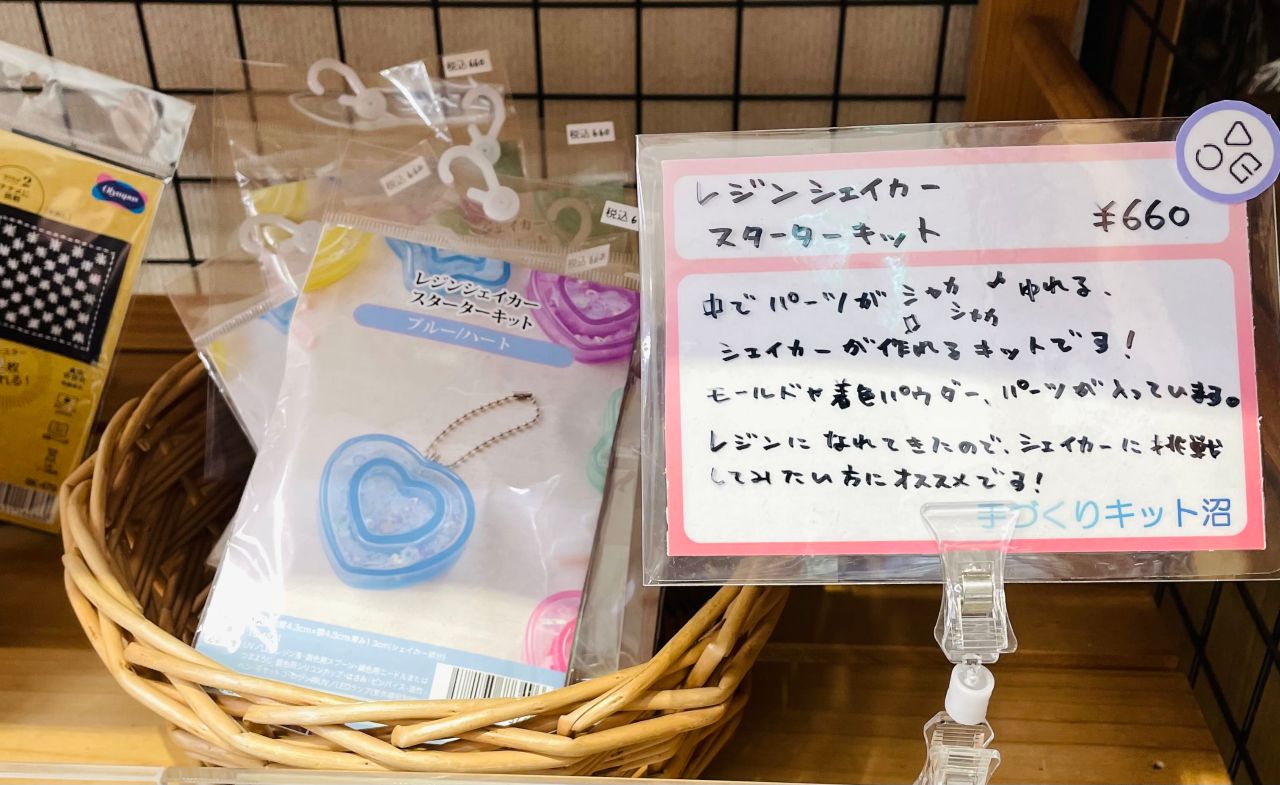 Olympus
税込 660
税込 660
税込 660
税込 6
税込 660
レジンシェイカー
スターターキット
ブルー/ハート
レジンシェイカー
スターターキット
¥660
中でパーツがシャカシャカ♪ゆれる、
シェイカーが作れるキットです!
モールドや着色パウダー、パーツが入っています。
レジンになれてきたので、シェイカーに挑戦
してみたい方にオススメです!
手づくりキット沼